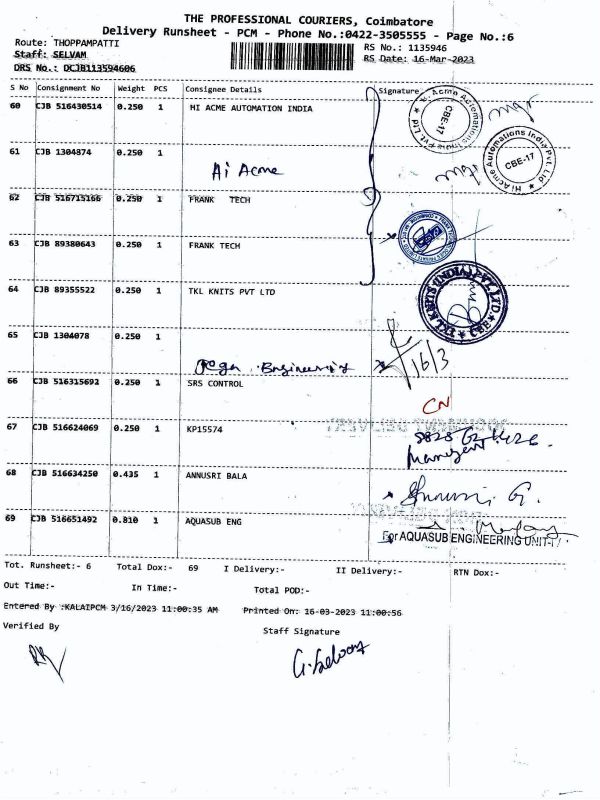 THE PROFESSIONAL COURIERS, Coimbatore
Delivery Runsheet - PCM - Phone No.:0422-3505555 - Page No.:6
Route: THOPPAMPATTI RS No.: 1135946
Staff: SELVAM RS Date: 16-Mar-2023
DRS No.: DCJB113594606
S No Consignment No Weight PCS Consignee Details Signature
60 CJB 516430514 0.250 1 HI ACME AUTOMATION INDIA
Hi Acme Automations India Pvt. Ltd CBE-17
61 CJB 1304874 0.250 1 Hi Acme
62 CJB 516715166 0.250 1 FRANK TECH
63 CJB 89380643 0.250 1 FRANK TECH
64 CJB 89355522 0.250 1 TKL KNITS PVT LTD
TKL KNITS (INDIA) PVT. LTD.
65 CJB 1304078 0.250 1 Engineering 16/3
66 CJB 516315692 0.250 1 SRS CONTROL
CN
67 CJB 516624069 0.250 1 KP15574
68 CJB 516634250 0.435 1 ANNUSRI BALA
69 CJB 516651492 0.810 1 AQUASUB ENG
For AQUASUB ENGINEERING UNIT-I
Tot. Runsheet:- 6 Total Dox:- 69 I Delivery:- II Delivery:- RTN Dox:-
Out Time:- In Time:- Total POD:-
Entered By :KALAIPCM 3/16/2023 11:00:35 AM Printed On: 16-03-2023 11:00:56
Verified By Staff Signature